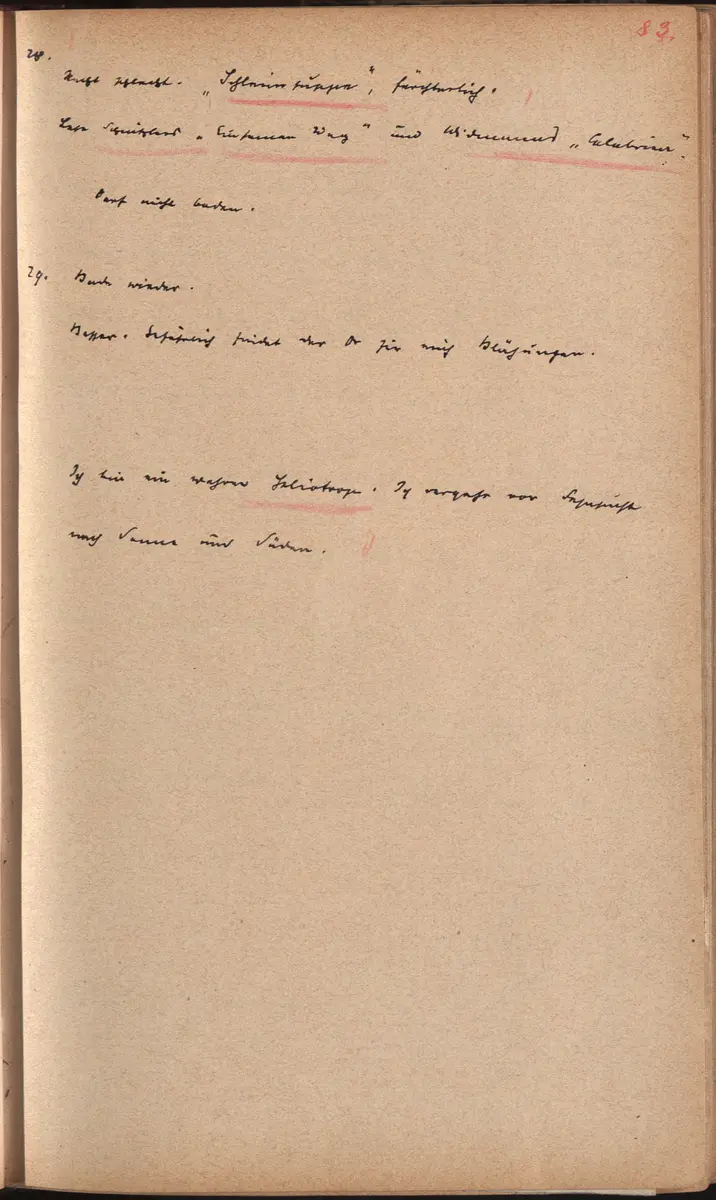 83.
28.
Recht schlecht. „Schleimsuppe“, fürchterlich.
Lese Schnitzlers „Einsamen Weg“ und Widmanns „Calabrien“.
Darf nicht baden.
29. Bade wieder.
Besser. Gefährlich findet der Dr für mich Blähungen.
Ich bin ein wahrer Heliotrop. Ich vergehe vor Sehnsucht
nach Sonne und Süden.